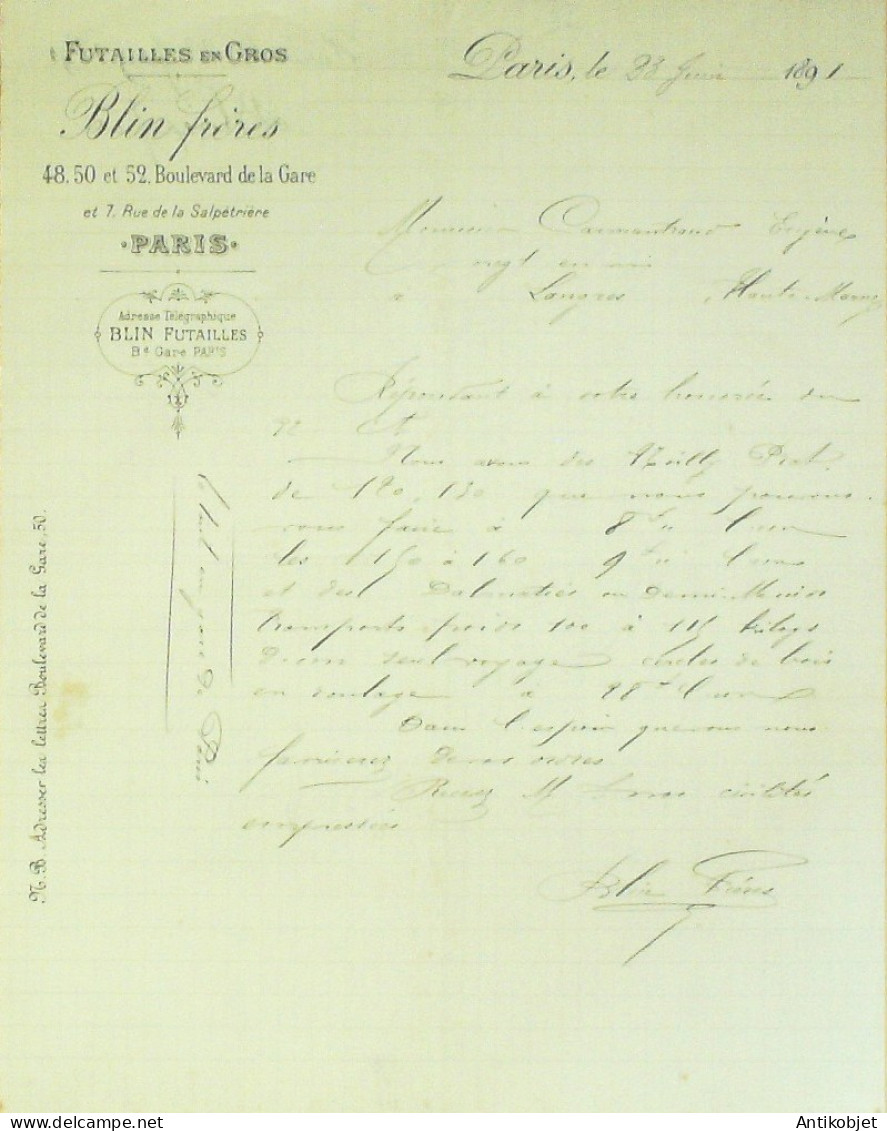 FUTAILLES EN GROS
Blin frères
48. 50 et 52. Boulevard de la Gare
et 7. Rue de la Salpétrière
PARIS
Adresse Télégraphique
BLIN FUTAILLES
Bd Gare PARIS
N. B. Adresser les lettres Boulevard de la Gare, 50.
Paris, le 23 Juin 1891
Monsieur Carmantrand Eugène
à Langres Haute-Marne
Répondant à votre honorée du
22 Ct
Nous avons des
de 120, 130 que nous pouvons
vous faire à 8 l'un
les 150 à 160 9 l'un
et des ou Demi-Muids
transports poids 100 à 115 kilogs
d'un seul voyage cercles de bois
en roulage à 28 l'un
Dans l'espoir que vous nous
favoriserez de vos ordres
Recevez M nos civilités
empressées
Blin Frères
Le tout en gare de Paris
Antikobjet